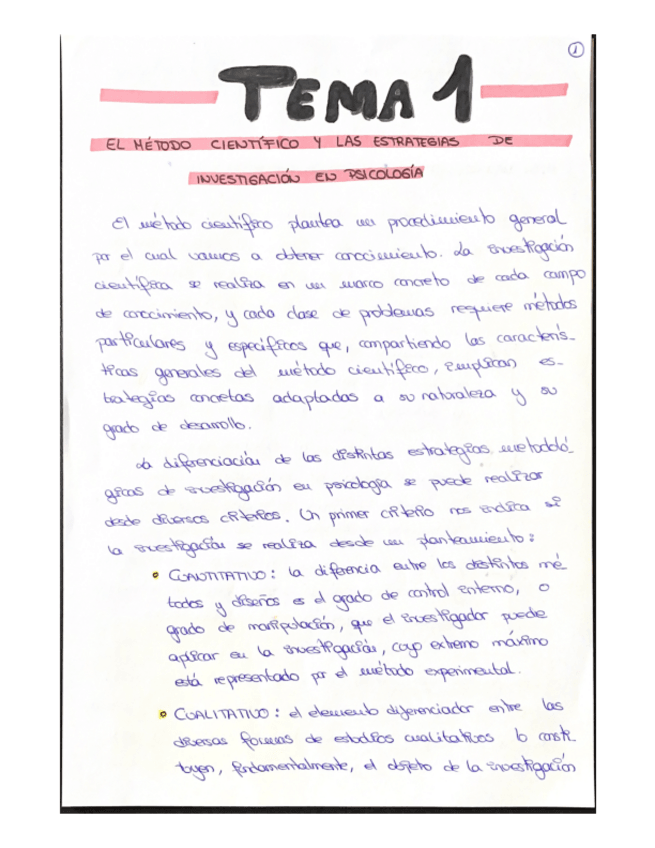 1
TEMA 1
EL MÉTODO CIENTÍFICO Y LAS ESTRATEGIAS DE
INVESTIGACIÓN EN PSICOLOGÍA
El método científico plantea un procedimiento general
por el cual vamos a obtener conocimiento. La investigación
científica se realiza en un marco concreto de cada campo
de conocimiento, y cada clase de problemas requiere métodos
particulares y específicos que, compartiendo las caracterís-
ticas generales del método científico, implican es-
trategias concretas adaptadas a su naturaleza y su
grado de desarrollo.
La diferenciación de las distintas estrategias metodoló
gicas de investigación en psicología se puede realizar
desde diversos criterios. Un primer criterio nos indica si
la investigación se realiza desde un planteamiento:
• CUANTITATIVO: la diferencia entre los distintos mé
todos y diseños es el grado de control interno, o
grado de manipulación, que el investigador puede
aplicar en la investigación, cuyo extremo máximo
está representado por el método experimental.
• CUALITATIVO: el elemento diferenciador entre las
diversas formas de estudios cualitativos lo consti
tuyen, fundamentalmente, el objeto de la investigación